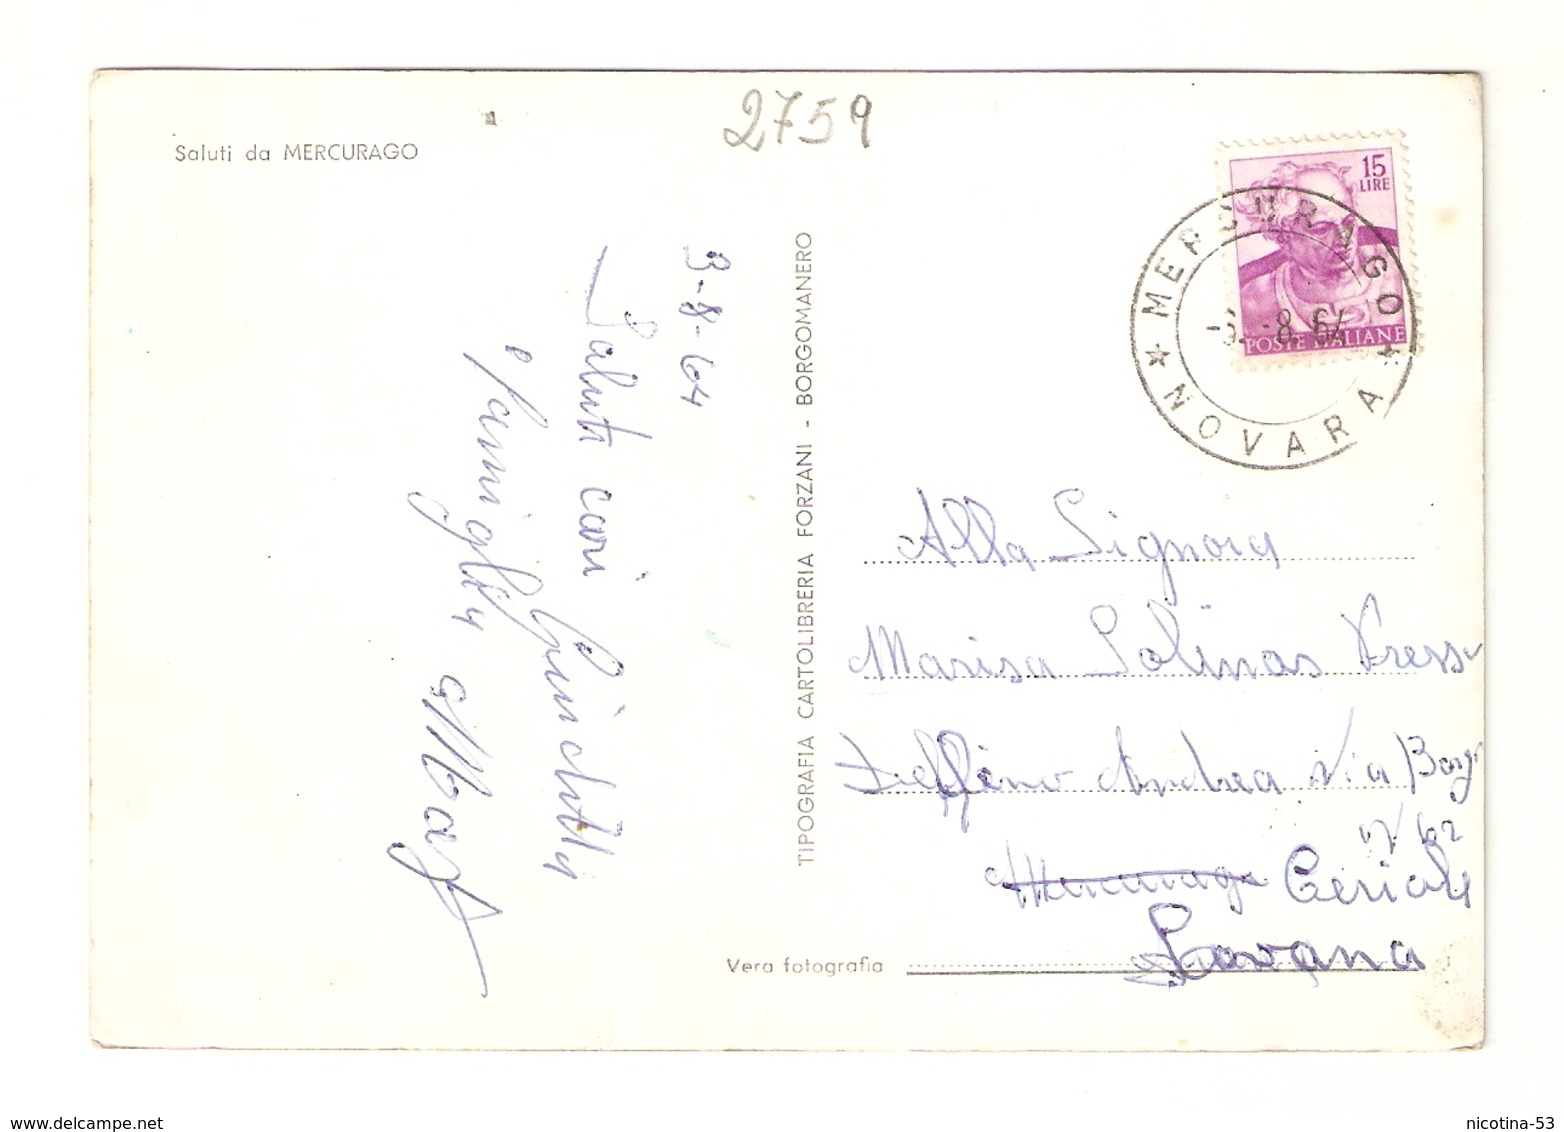 2759
Saluti da MERCURAGO
15
LIRE
POSTE ITALIANE
MERCURAGO
3.-8.64
★ NOVARA ★
3-8-64
Saluti cari
e famiglia
TIPOGRAFIA CARTOLIBRERIA FORZANI - BORGOMANERO
Alla Signora
Marisa Solinas Presso
Delfino Andrea Via Borgo
n. 62
Mercurago Ceriale
Savona
Vera fotografia
www.delcampe.net
nicotina-53